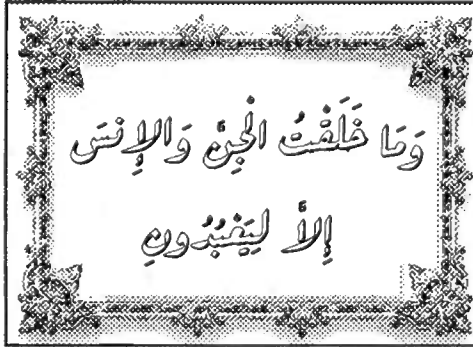 وَمَا خَلَقْتُ الْجِنَّ وَالإِنسَ
إِلاَّ لِيَعْبُدُونِ